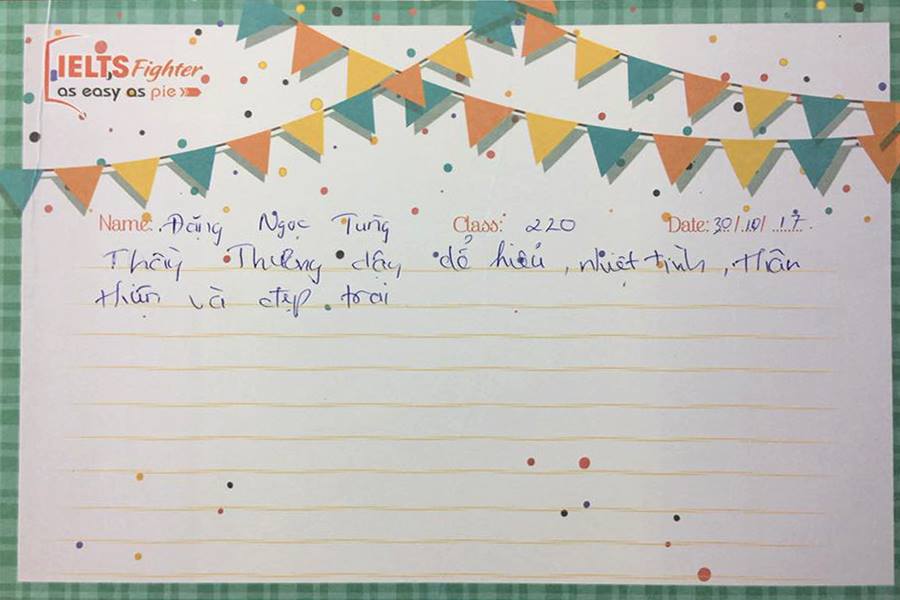 IELTS Fighter
as easy as pie
Name: Đặng Ngọc Tung Class: 220 Date: 30/10/17
Thầy Thương dạy dể hiểu, nhiệt tình, thân
thiện và đẹp trai